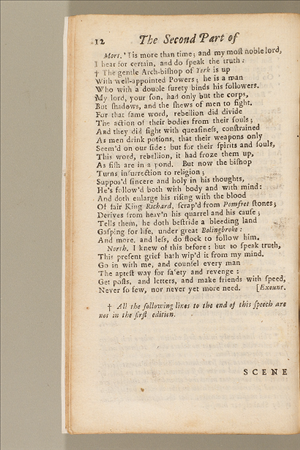 12 The Second Part of
Mort. 'Tis more than time; and my most noble lord,
I hear for certain, and do speak the truth:
† The gentle Arch-bishop of York is up
With well-appointed Powers; he is a man
Who with a double surety binds his followers.
My lord, your son, had only but the corps,
But shadows, and the shews of men to fight.
For that same word, rebellion did divide
The action of their bodies from their souls;
And they did fight with queasiness, constrained
As men drink potions, that their weapons only
Seem'd on our side: but for their spirits and souls,
This word, rebellion, it had froze them up,
As fish are in a pond. But now the bishop
Turns insurrection to religion;
Suppos'd sincere and holy in his thoughts,
He's follow'd both with body and with mind:
And doth enlarge his rising with the blood
Of fair King Richard, scrap'd from Pomfret stones;
Derives from heav'n his quarrel and his cause;
Tells them, he doth bestride a bleeding land
Gasping for life, under great Bolingbroke:
And more, and less, do flock to follow him.
North. I knew of this before; but to speak truth,
This present grief hath wip'd it from my mind.
Go in with me, and counsel every man
The aptest way for safety and revenge:
Get posts, and letters, and make friends with speed,
Never so few, nor never yet more need. [Exeunt.
† All the following lines to the end of this speech are
not in the first edition.
SCENE